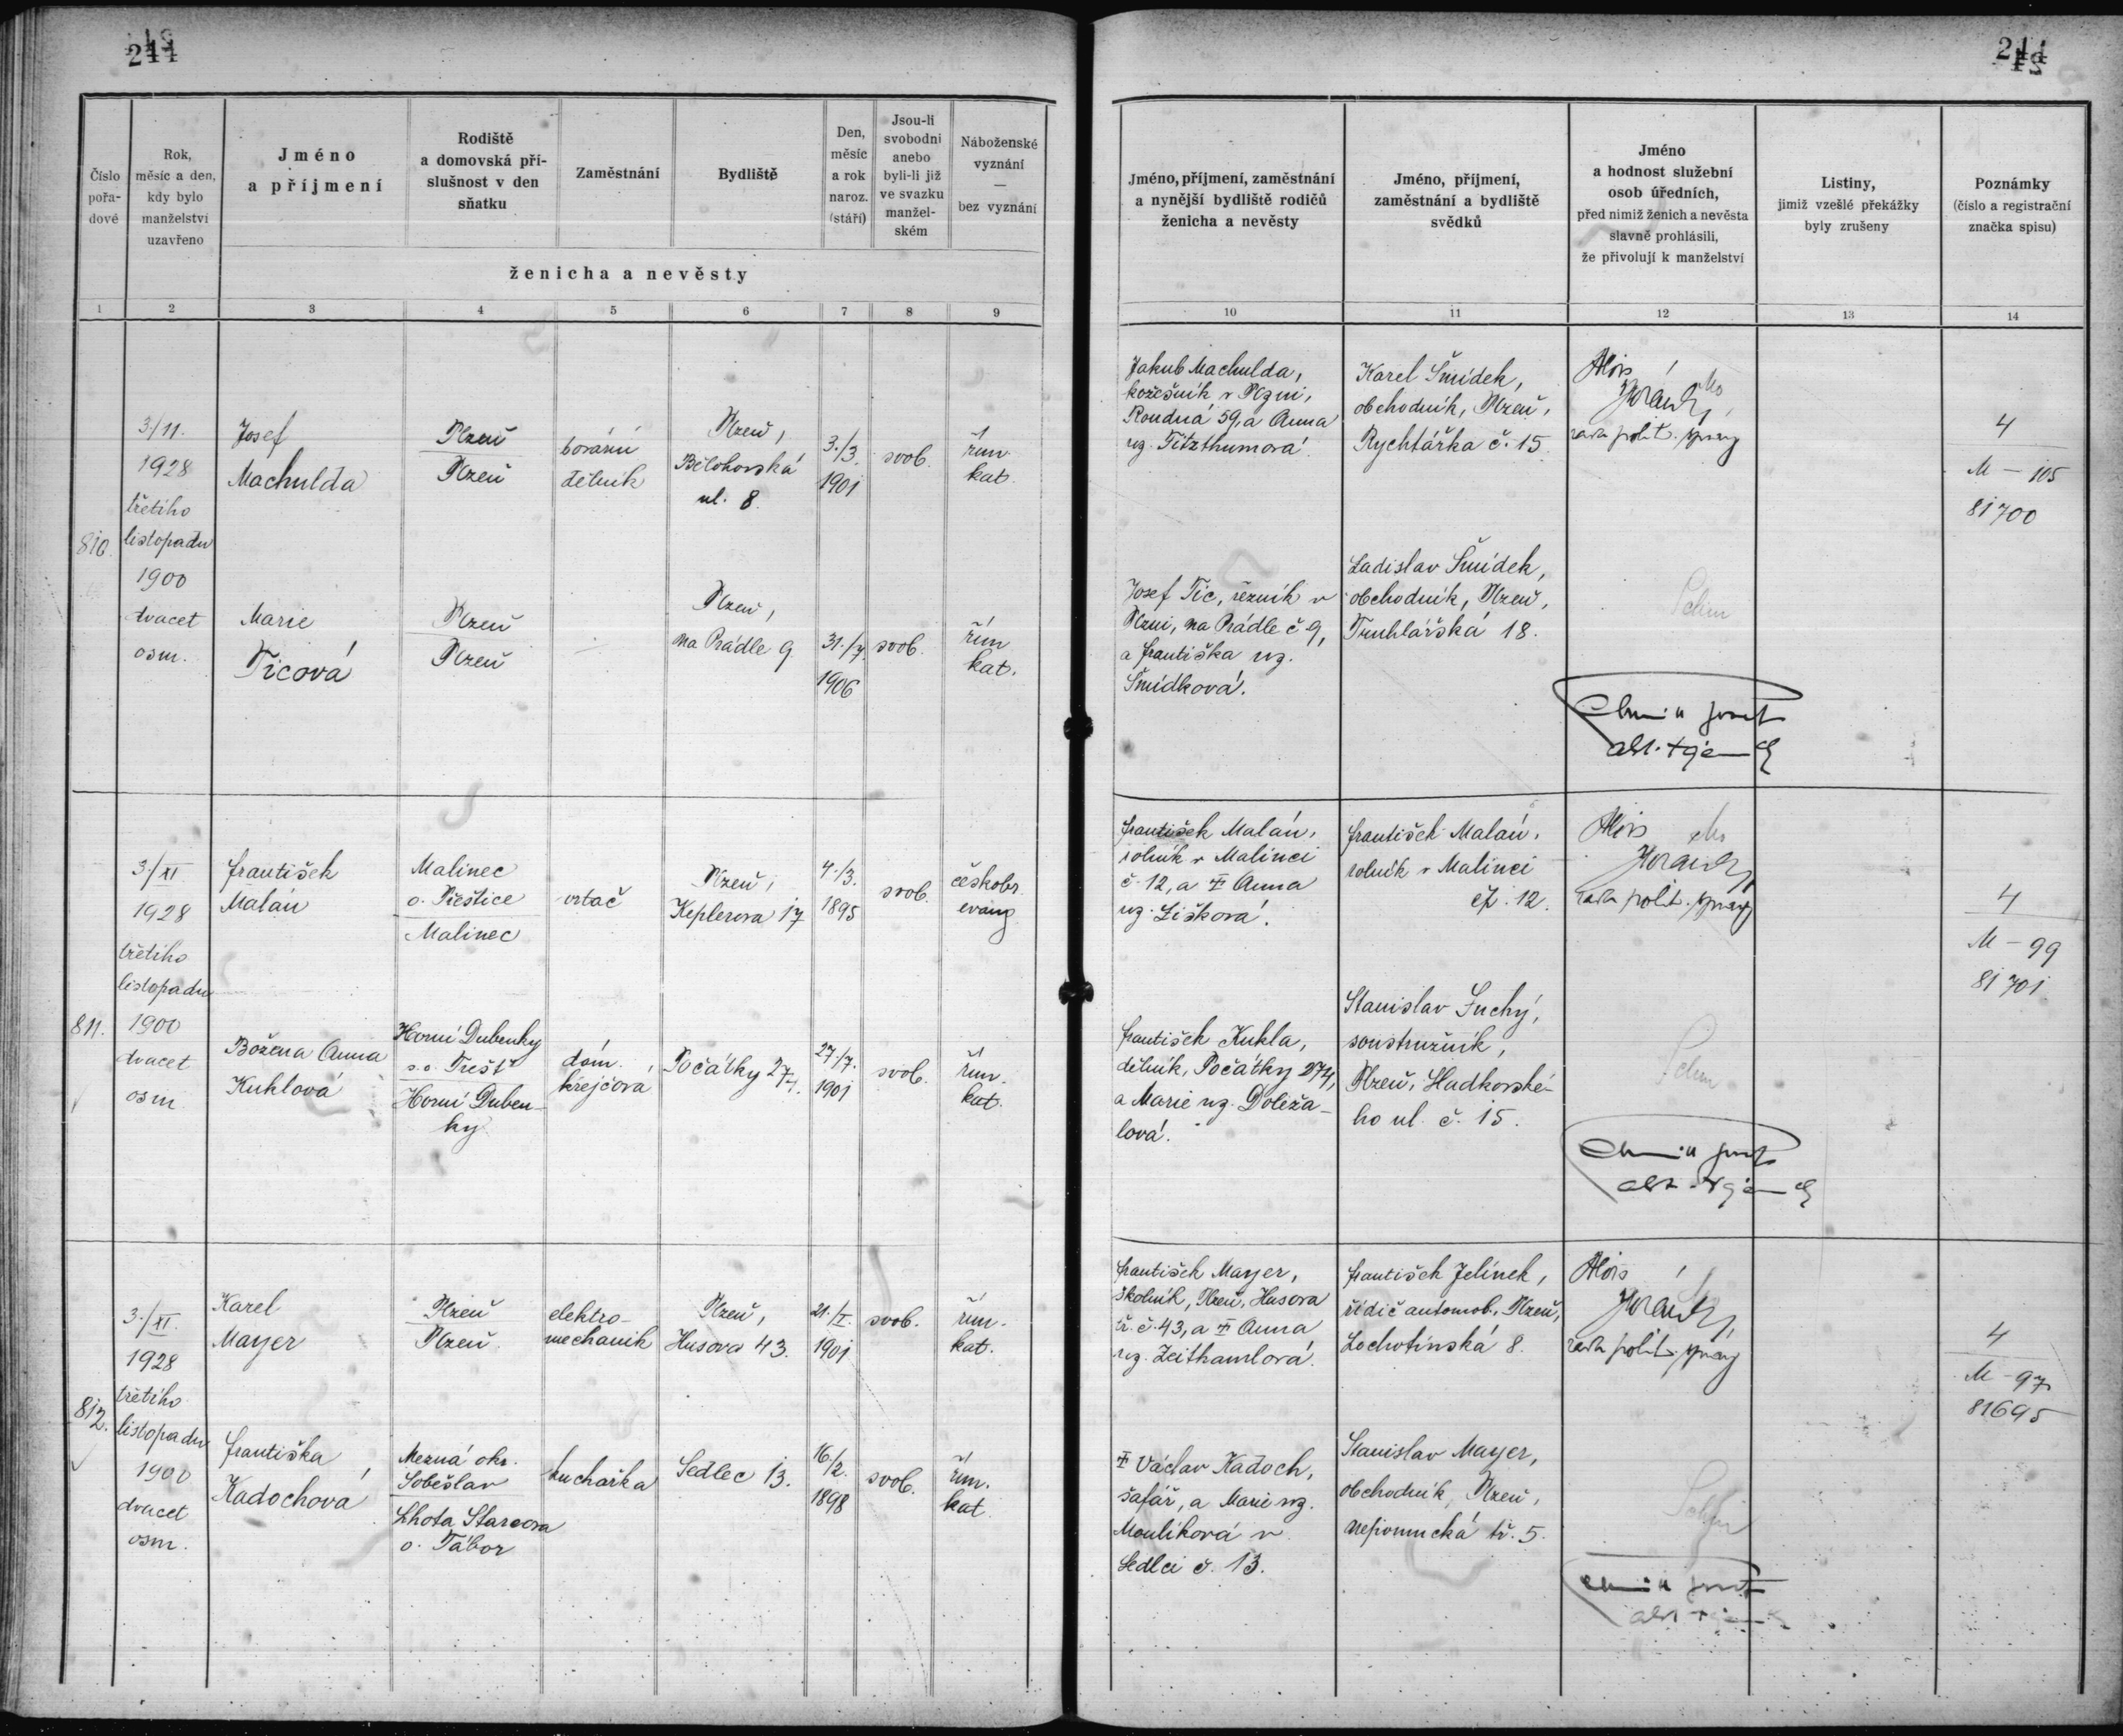 244
244
Číslo
pořa-
dové
Rok,
měsíc a den,
kdy bylo
manželství
uzavřeno
Jméno
a příjmení
Rodiště
a domovská pří-
slušnost v den
sňatku
Zaměstnání
Bydliště
Den,
měsíc
a rok
naroz.
(stáří)
Jsou-li
svobodni
anebo
byli-li již
ve svazku
manžel-
ském
Náboženské
vyznání
—
bez vyznání
ženicha a nevěsty
1 2 3 4 5 6 7 8 9
Jméno, příjmení, zaměstnání
a nynější bydliště rodičů
ženicha a nevěsty
Jméno, příjmení,
zaměstnání a bydliště
svědků
Jméno
a hodnost služební
osob úředních,
před nimiž ženich a nevěsta
slavně prohlásili,
že přivolují k manželství
Listiny,
jimiž vzešlé překážky
byly zrušeny
Poznámky
(číslo a registrační
značka spisu)
10 11 12 13 14
810.
3./11.
1928
třetího
listopadu
1900
dvacet
osm.
Josef
Machulda
Plzeň
Plzeň
tovární
dělník
Plzeň,
Bělohorská
ul. 8.
3./3.
1901
svob.
řím.
kat.
Marie
Ticová
Plzeň
Plzeň
Plzeň,
na Prádle 9.
31./7.
1906
svob.
řím
kat.
Jakub Machulda,
kožešník v Plzni,
Roudná 59, a Anna
roz. Titzthumová.
Josef Tic, řezník v
Plzni, na Prádle č 9,
a Františka roz.
Šmídková.
Karel Šmídek,
obchodník, Plzeň,
Rychtářka č. 15.
Ladislav Šmídek,
obchodník, Plzeň,
Truhlářská 18.
Alois
rada polit. správy
4
M — 105
81700
811.
3./XI
1928
třetího
listopadu
1900
dvacet
osm
František
Malán
Malinec
o. Přeštice
Malinec
vrtač
Plzeň,
Keplerova 17
4./3.
1895
svob.
českobr.
evang.
Božena Anna
Kuklová
Horní Dubenky
s.o. Třešť
Horní Duben-
ky.
dom.
krejčová
Počátky 274.
27./7.
1901
svob.
řím.
kat.
František Malán,
rolník v Malinci
č. 12, a ‡ Anna
roz. Lišková.
František Kukla,
dělník, Počátky 274,
a Marie roz. Doleža-
lová.
František Malán,
rolník v Malinci
čp. 12.
Stanislav Suchý,
soustružník,
Plzeň, Sladkovské-
ho ul. č. 15.
Alois
rada polit. správy
4
M — 99
81701
812.
3./XI.
1928
třetího
listopadu
1900
dvacet
osm.
Karel
Mayer
Plzeň
Plzeň
elektro-
mechanik
Plzeň,
Husova 43.
21./I.
1901
svob.
řím.
kat.
Františka
Kadochová
Mezná okr.
Soběslav
Lhota Starcova
o. Tábor
kuchařka
Sedlec 13.
16./2.
1898
svob.
řím.
kat.
František Mayer,
školník, Plzeň, Husova
tř. č. 43, a ‡ Anna
roz. Zeithamlová.
‡ Václav Kadoch,
šafář, a Marie roz.
Moulíková v
Sedlci č. 13.
František Jelínek,
řídič automob., Plzeň,
Lochotínská 8.
Stanislav Mayer,
obchodník, Plzeň,
nepomucká tř. 5.
Alois
rada polit. správy
4
M — 97
81695